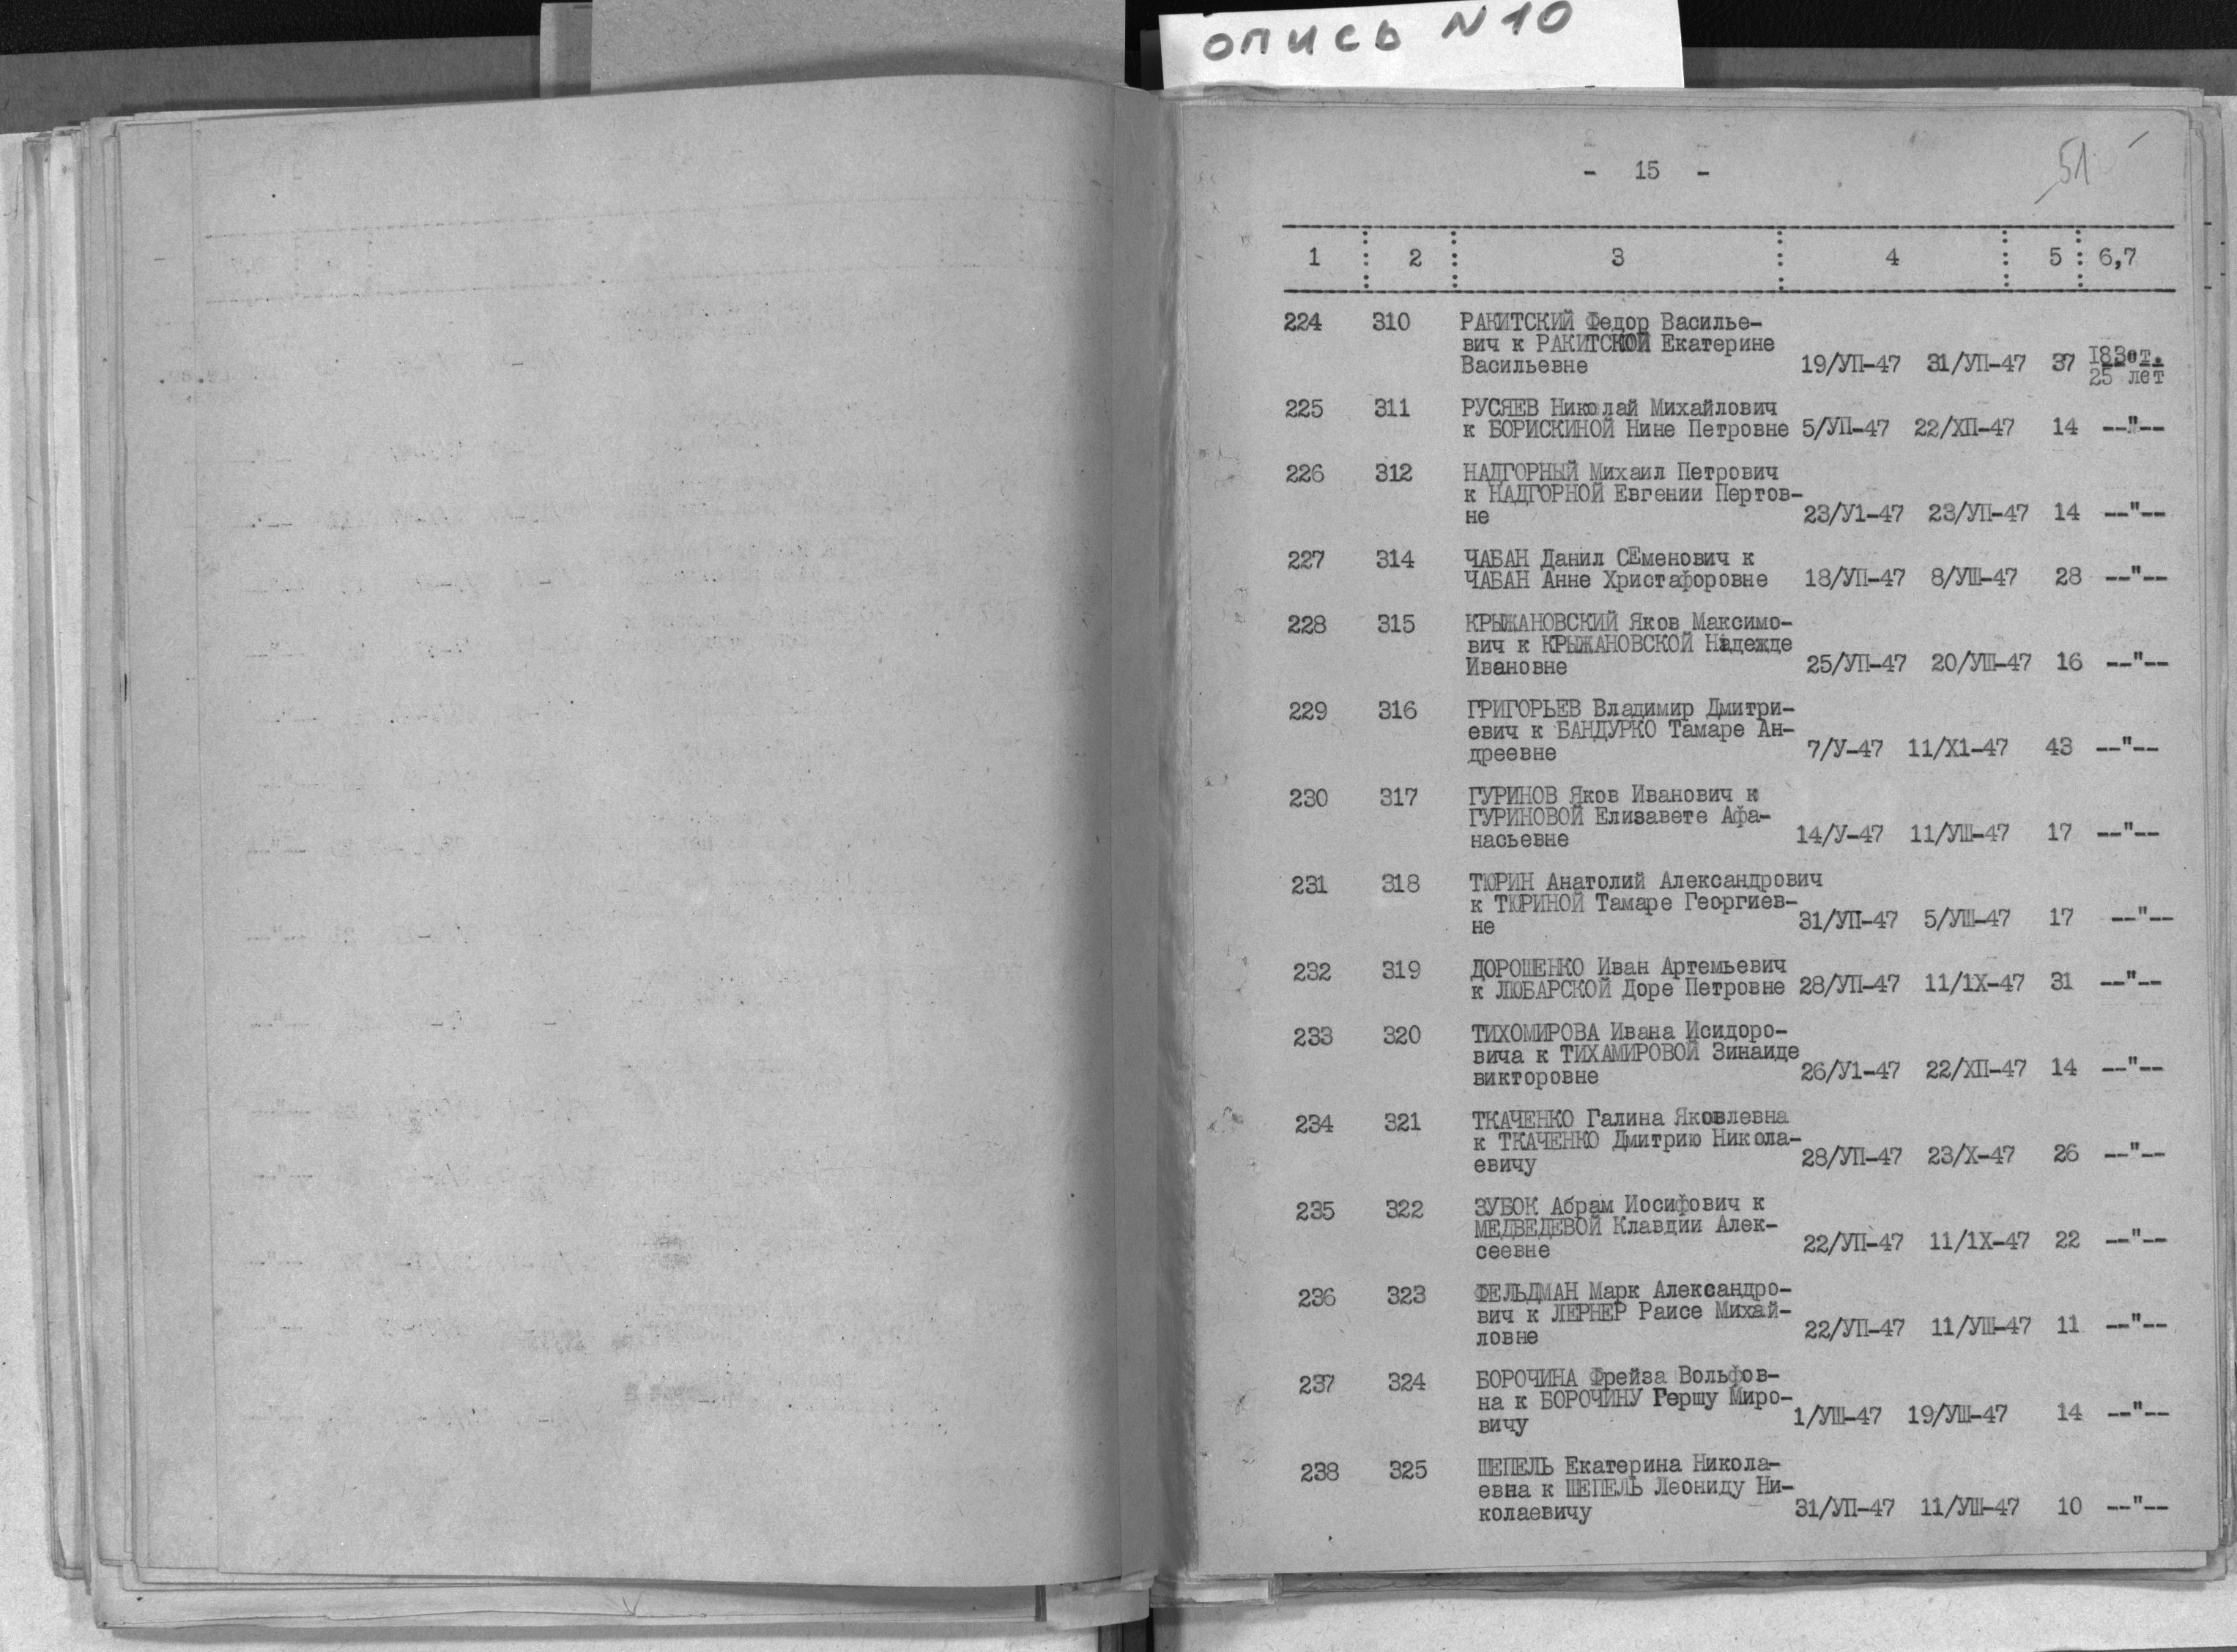 опись N 10
- 15 -
51
1 2 3 4 5 6,7
224 310 РАКИТСКИЙ Федор Василье-
вич к РАКИТСКОЙ Екатерине
Васильевне 19/УП-47 31/УП-47 37 183ст.
25 лет
225 311 РУСЯЕВ Николай Михайлович
к БОРИСКИНОЙ Нине Петровне 5/УП-47 22/ХП-47 14 --"--
226 312 НАДГОРНЫЙ Михаил Петрович
к НАДГОРНОЙ Евгении Пертов-
не 23/У1-47 23/УП-47 14 --"--
227 314 ЧАБАН Данил СЕменович к
ЧАБАН Анне Христафоровне 18/УП-47 8/УШ-47 28 --"--
228 315 КРЫЖАНОВСКИЙ Яков Максимо-
вич к КРЫЖАНОВСКОЙ Надежде
Ивановне 25/УП-47 20/УШ-47 16 --"--
229 316 ГРИГОРЬЕВ Владимир Дмитри-
евич к БАНДУРКО Тамаре Ан-
дреевне 7/У-47 11/Х1-47 43 --"--
230 317 ГУРИНОВ Яков Иванович к
ГУРИНОВОЙ Елизавете Афа-
насьевне 14/У-47 11/УШ-47 17 --"--
231 318 ТЮРИН Анатолий Александрович
к ТЮРИНОЙ Тамаре Георгиев-
не 31/УП-47 5/УШ-47 17 --"--
232 319 ДОРОШЕНКО Иван Артемьевич
к ЛЮБАРСКОЙ Доре Петровне 28/УП-47 11/1Х-47 31 --"--
233 320 ТИХОМИРОВА Ивана Исидоро-
вича к ТИХАМИРОВОЙ Зинаиде
викторовне 26/У1-47 22/ХП-47 14 --"--
234 321 ТКАЧЕНКО Галина Яковлевна
к ТКАЧЕНКО Дмитрию Никола-
евичу 28/УП-47 23/Х-47 26 --"--
235 322 ЗУБОК Абрам Иосифович к
МЕДВЕДЕВОЙ Клавдии Алек-
сеевне 22/УП-47 11/1Х-47 22 --"--
236 323 ФЕЛЬДМАН Марк Александро-
вич к ЛЕРНЕР Раисе Михай-
ловне 22/УП-47 11/УШ-47 11 --"--
237 324 БОРОЧИНА Фрейза Вольфов-
на к БОРОЧИНУ Гершу Миро-
вичу 1/УШ-47 19/УШ-47 14 --"--
238 325 ШЕПЕЛЬ Екатерина Никола-
евна к ШЕПЕЛЬ Леониду Ни-
колаевичу 31/УП-47 11/УШ-47 10 --"--